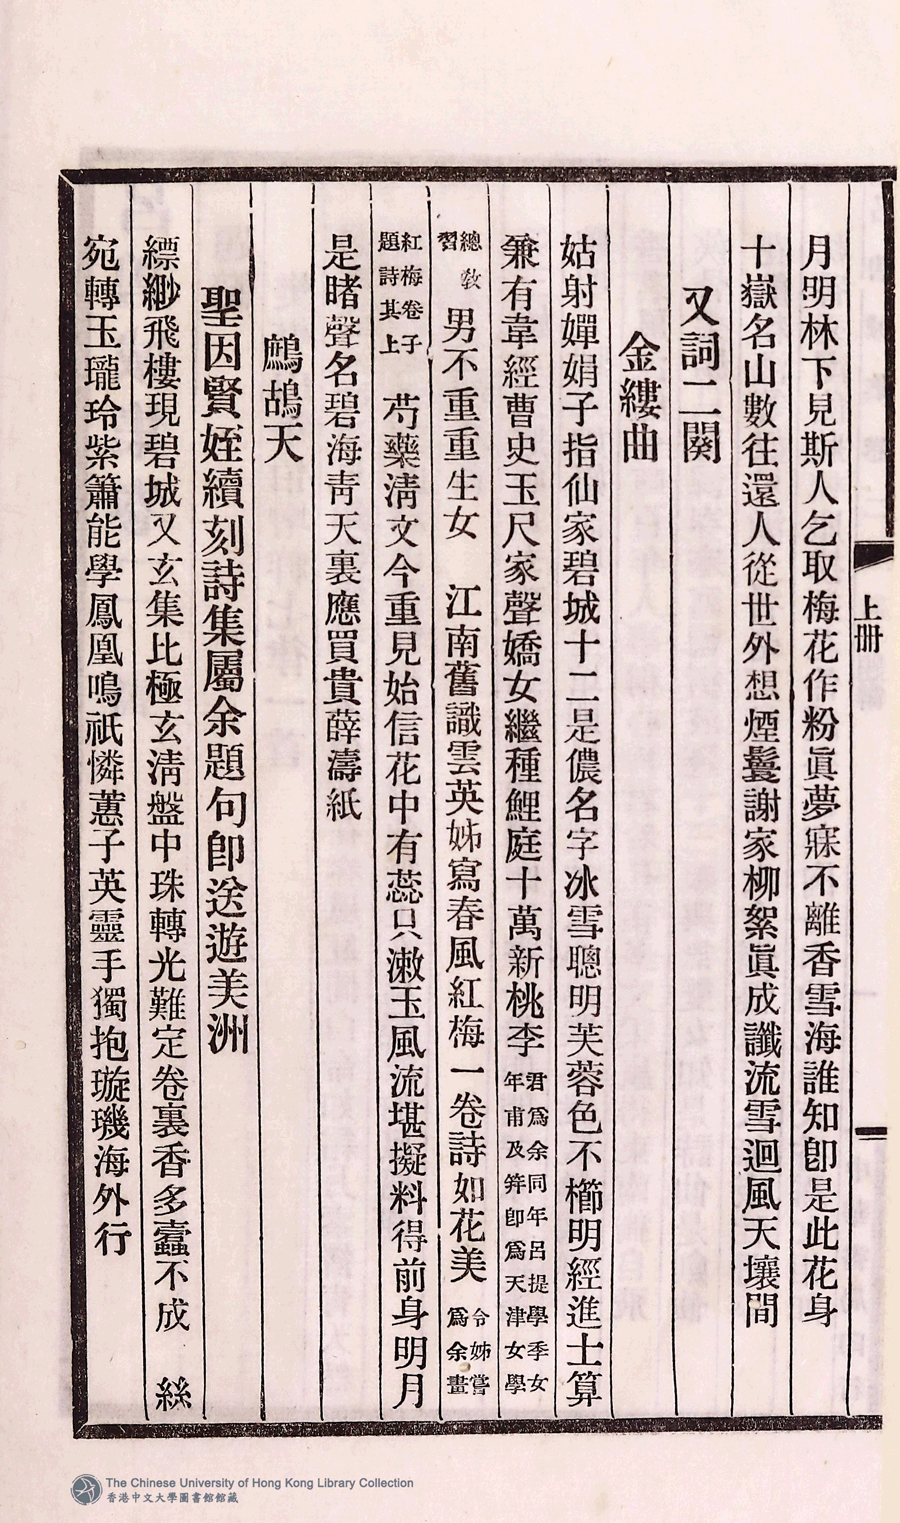 上冊
月明林下見斯人乞取梅花作粉眞夢寐不離香雪海誰知卽是此花身
十嶽名山數往還人從世外想煙鬟謝家柳絮眞成讖流雪迴風天壤間
又詞二闋
金縷曲
姑射嬋娟子指仙家碧城十二是儂名字冰雪聰明芙蓉色不櫛明經進士算
兼有韋經曹史玉尺家聲嬌女繼種鯉庭十萬新桃李君爲余同年呂提學季女年甫及笄卽爲天津女學
總敎習男不重重生女　江南舊識雲英姊寫春風紅梅一卷詩如花美令姊嘗爲余畫
紅梅卷子題詩其上芍藥淸文今重見始信花中有蕊只漱玉風流堪擬料得前身明月
是睹聲名碧海靑天裏應買貴薛濤紙
鷓鴣天
聖因賢姪續刻詩集屬余題句卽送遊美洲
縹緲飛樓現碧城又玄集比極玄淸盤中珠轉光難定卷裏香多蠹不成　絲
宛轉玉瓏玲紫簫能學鳳凰鳴祇憐蕙子英靈手獨抱璇璣海外行
The Chinese University of Hong Kong Library Collection
香港中文大學圖書館館藏